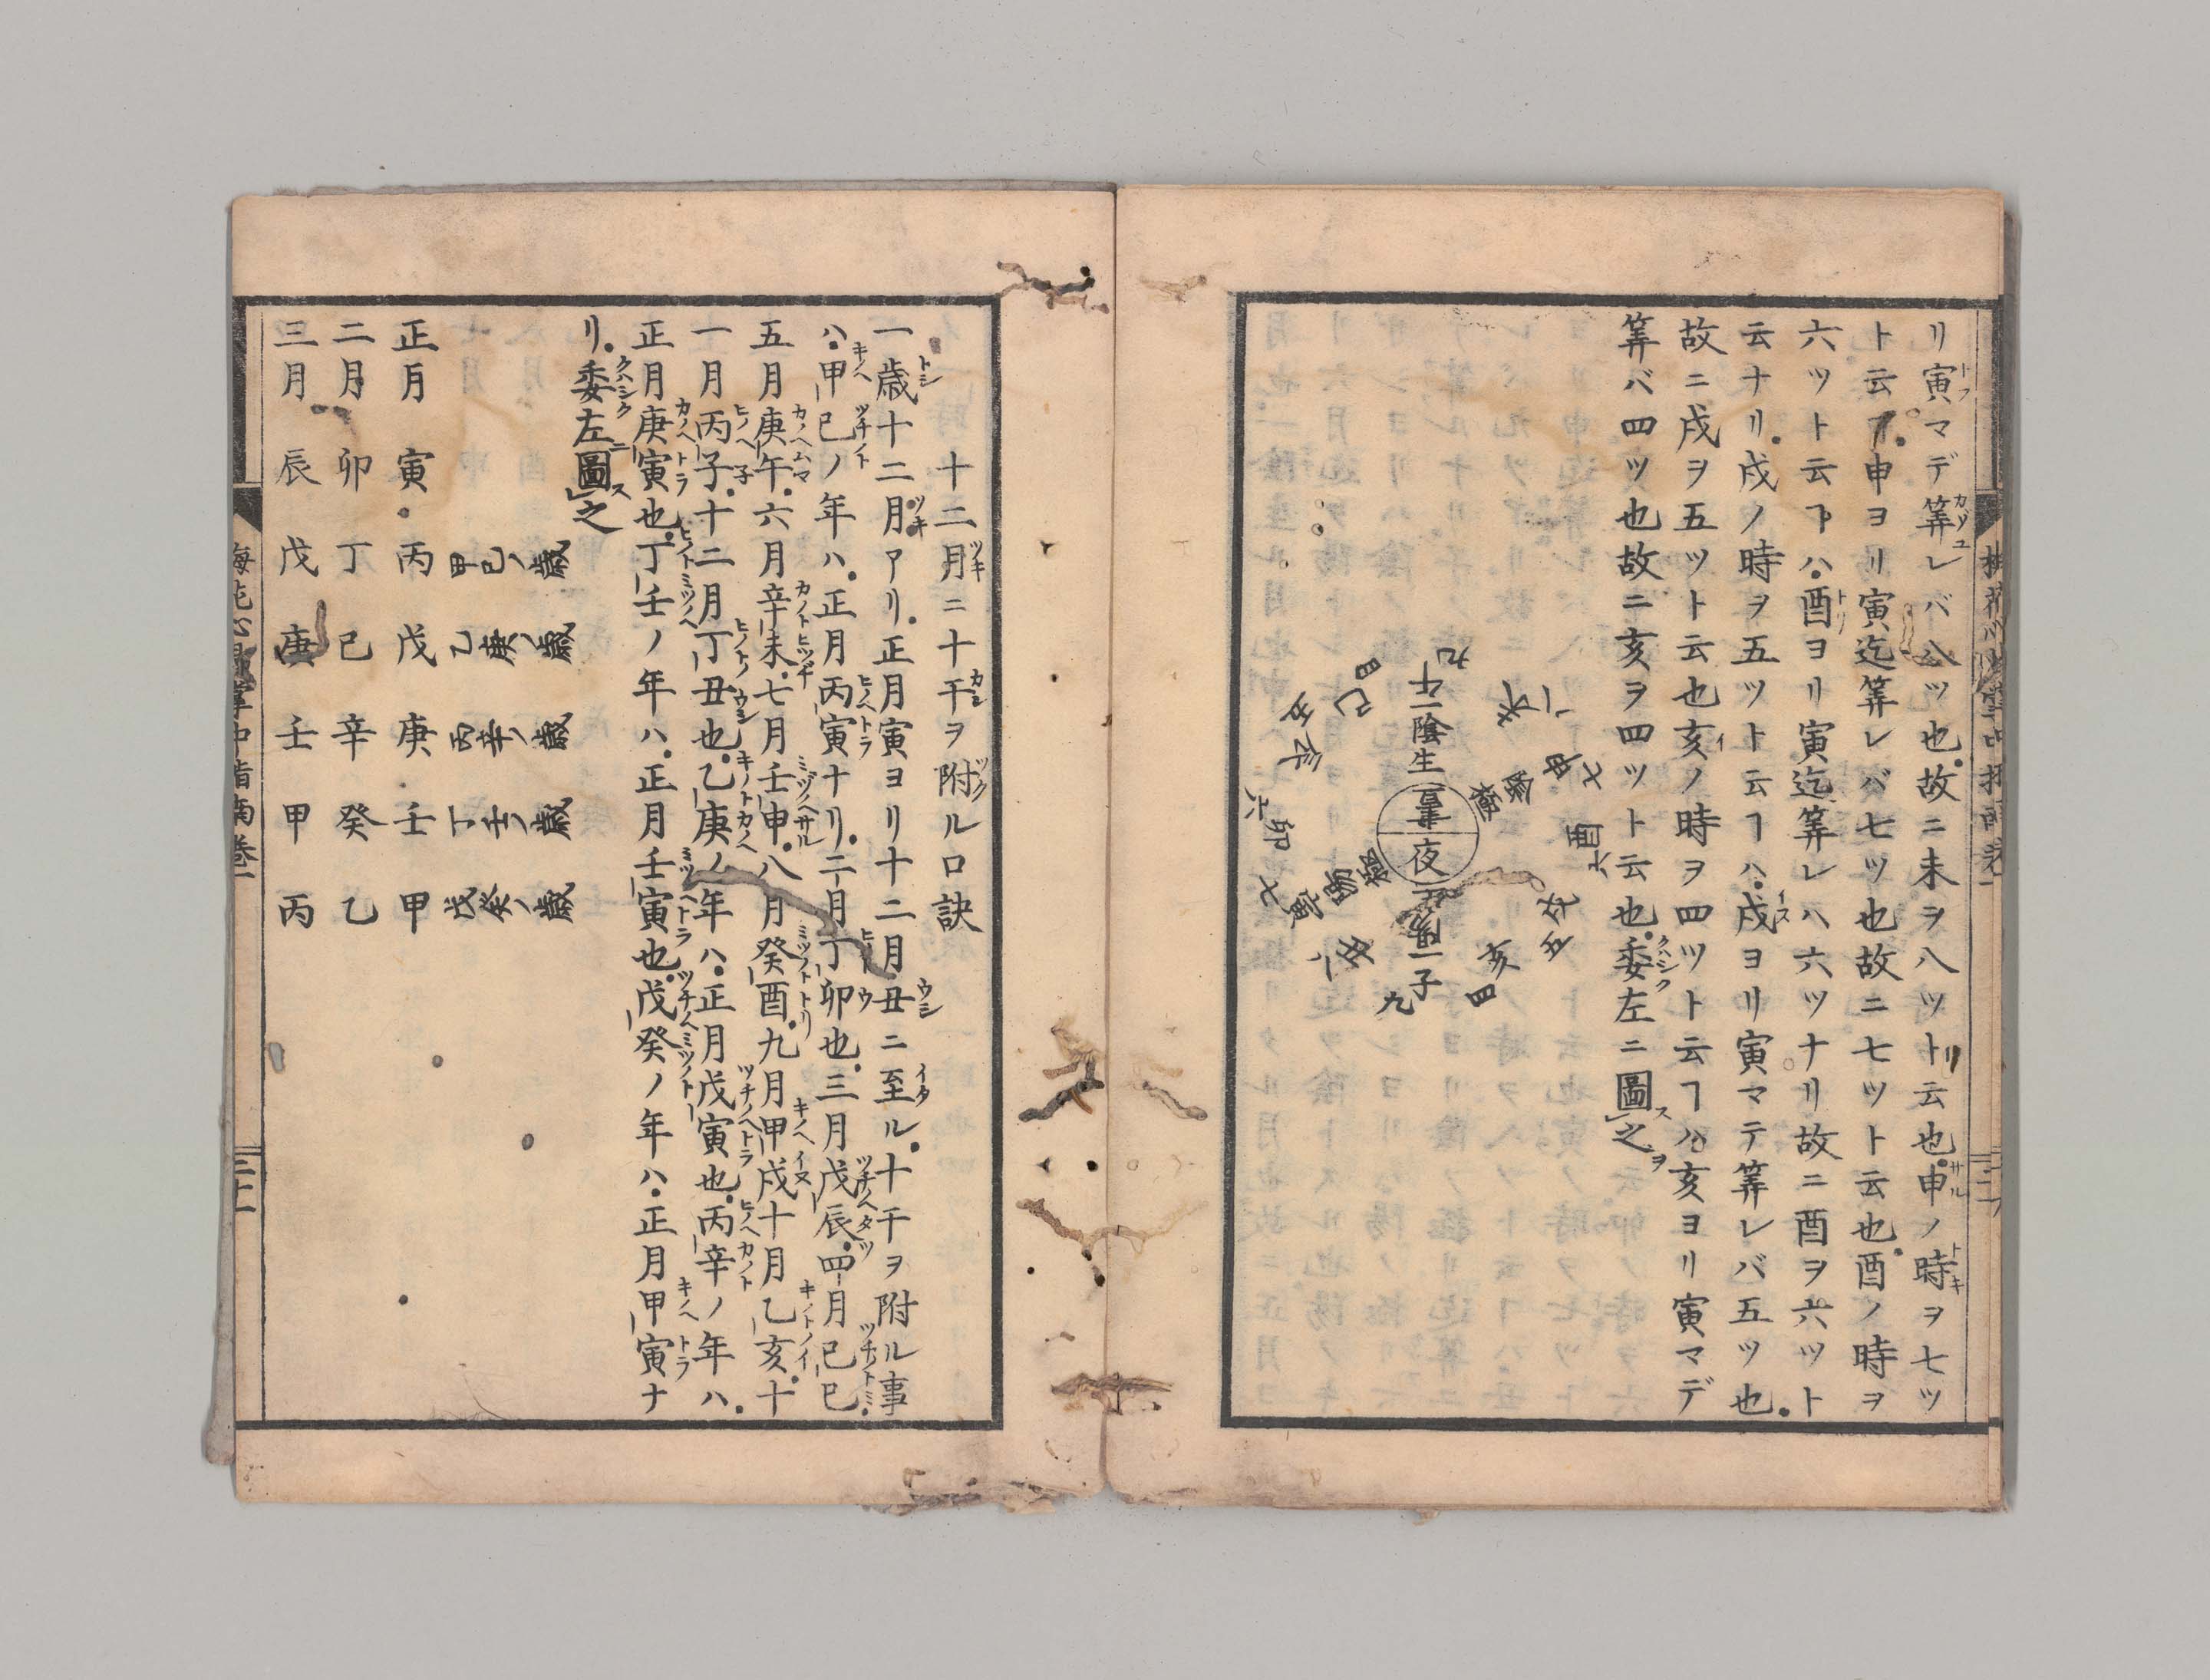 リ寅マデ筭レバ八ツ也故ニ未ヲ八ツト云也申ノ時ヲ七ツ
ト云ヿ申ヨリ寅迄筭レバ七ツ也故ニ七ツト云也酉ノ時ヲ
六ツト云ヿハ酉ヨリ寅迄筭レハ六ツナリ故ニ酉ヲ六ツト
云ナリ戌ノ時ヲ五ツト云ヿハ戌ヨリ寅マテ筭レバ五ツ也
故ニ戌ヲ五ツト云也亥ノ時ヲ四ツト云ヿハ亥ヨリ寅マデ
筭バ四ツ也故ニ亥ヲ四ツト云也委左ニ圖之
九 午 一陰生
八 未
七 申
陰極
六 酉
五 戌
四 亥
九 子
八 丑
七 寅
陽極
六 卯
五 辰
四 巳
晝
夜
十二月ニ十干ヲ附ル口訣
一歳十二月アリ正月寅ヨリ十二月丑ニ至ル十干ヲ附ル事
ハ甲己ノ年ハ正月丙寅ナリ二月丁卯也三月戊辰四月己巳
五月庚午六月辛未七月壬申八月癸酉九月甲戌十月乙亥十
一月丙子十二月丁丑也乙庚ノ年ハ正月戊寅也丙辛ノ年ハ
正月庚寅也丁壬ノ年ハ正月壬寅也戊癸ノ年ハ正月甲寅ナ
リ委左圖之
甲己ノ歳 乙庚ノ歳 丙辛ノ歳 丁壬ノ歳 戊癸ノ歳
正月 寅 丙 戊 庚 壬 甲
二月 卯 丁 己 辛 癸 乙
三月 辰 戊 庚 壬 甲 丙